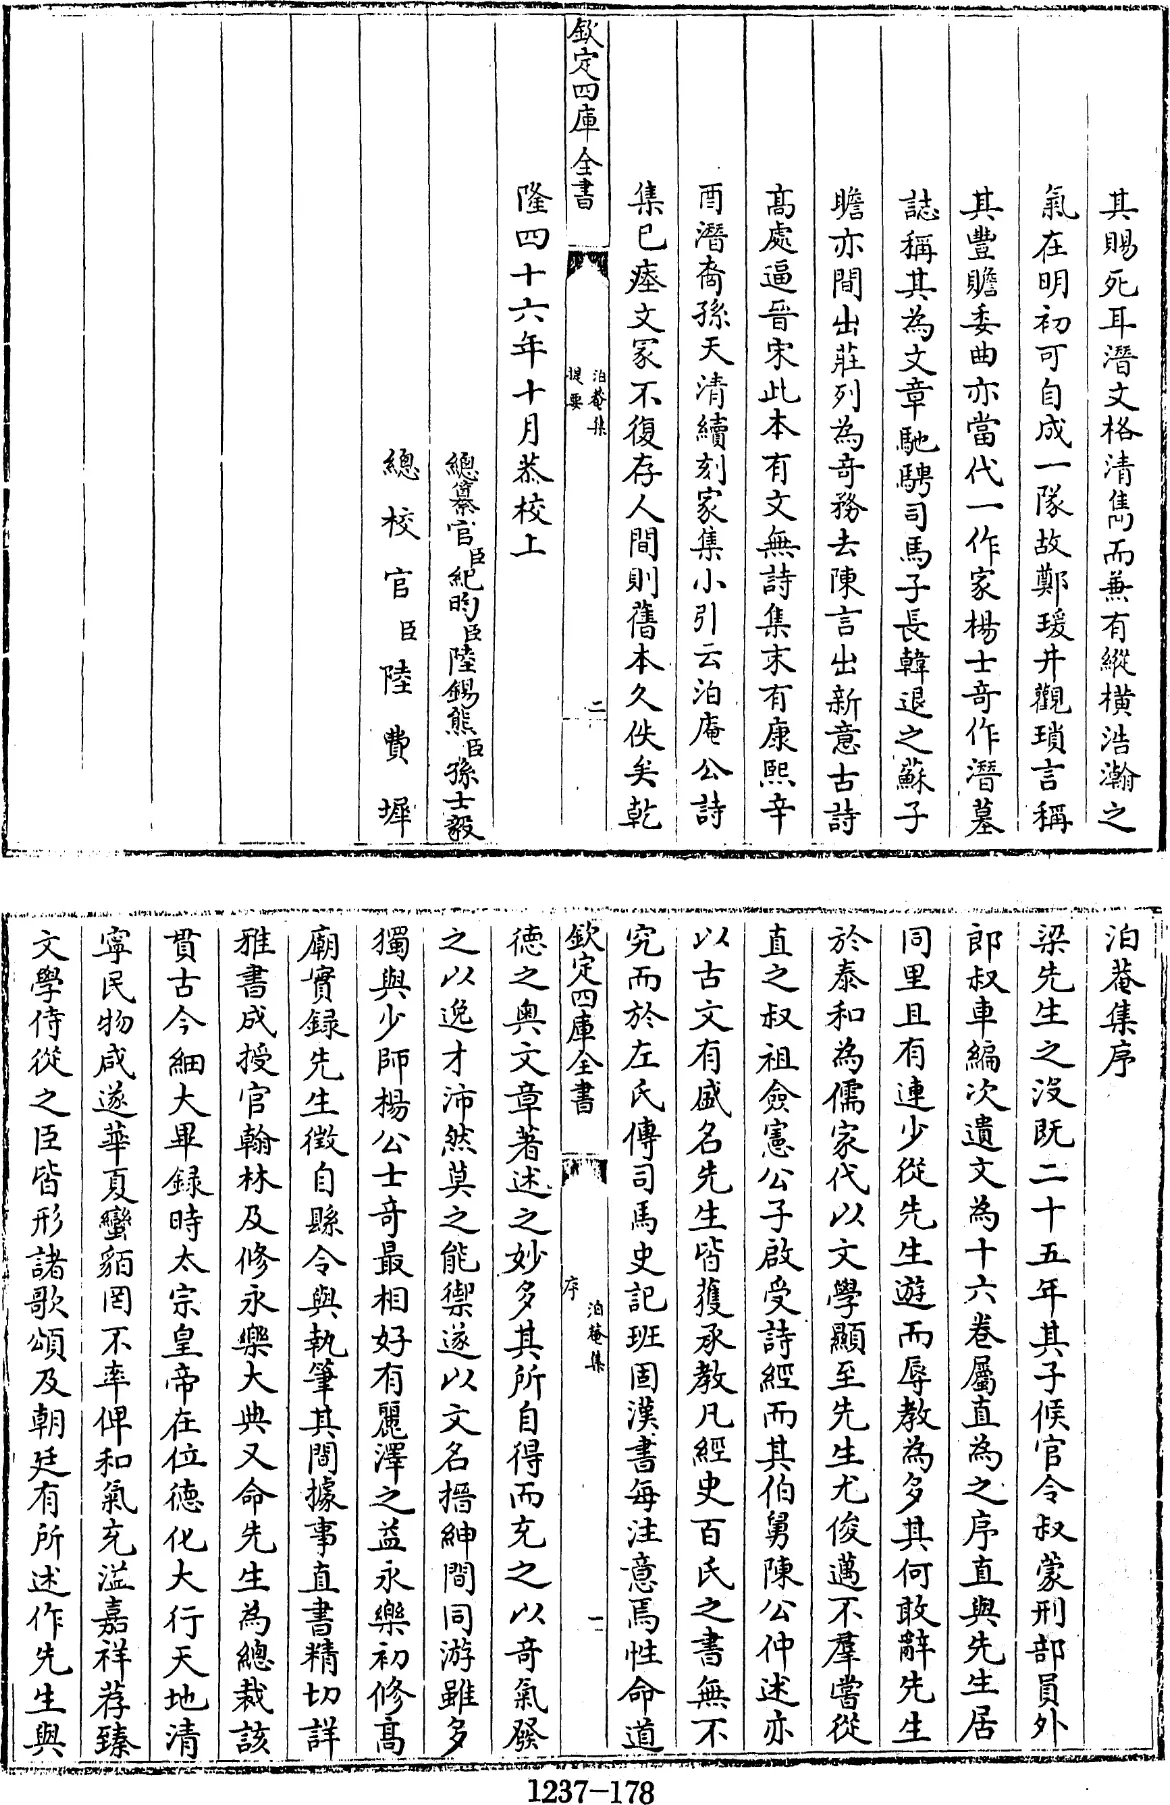 其賜死耳潛文格清雋而兼有縱橫浩瀚之
氣在明初可自成一隊故鄭瑗井觀瑣言稱
其豐贍委曲亦當代一作家楊士奇作潛墓
誌稱其為文章馳騁司馬子長韓退之蘇子
瞻亦間出莊列為奇務去陳言出新意古詩
高處逼晉宋此本有文無詩集末有康熙辛
酉潛裔孫天清續刻家集小引云泊庵公詩
集已瘞文冢不復存人間則舊本久佚矣乾
欽定四庫全書
泊菴集
提要
二
隆四十六年十月恭校上
總纂官臣紀昀臣陸錫熊臣孫士毅
總校官臣陸費墀
泊菴集序
梁先生之沒既二十五年其子候官令叔蒙刑部員外
郎叔車編次遺文為十六卷屬直為之序直與先生居
同里且有連少從先生遊而辱教為多其何敢辭先生
於泰和為儒家代以文學顯至先生尤俊邁不羣嘗從
直之叔祖僉憲公子啟受詩經而其伯舅陳公仲述亦
以古文有盛名先生皆獲承教凡經史百氏之書無不
究而於左氏傳司馬史記班固漢書每注意焉性命道
欽定四庫全書
泊菴集
序
一
德之奧文章著述之妙多其所自得而充之以奇氣發
之以逸才沛然莫之能禦遂以文名搢紳間同游雖多
獨與少師楊公士奇最相好有麗澤之益永樂初修高
廟實録先生徵自縣令與執筆其間據事直書精切詳
雅書成授官翰林及修永樂大典又命先生為總裁該
貫古今細大畢録時太宗皇帝在位德化大行天地清
寧民物咸遂華夏蠻貊罔不率俾和氣充溢嘉祥荐臻
文學侍從之臣皆形諸歌頌及朝廷有所述作先生與
1237-178